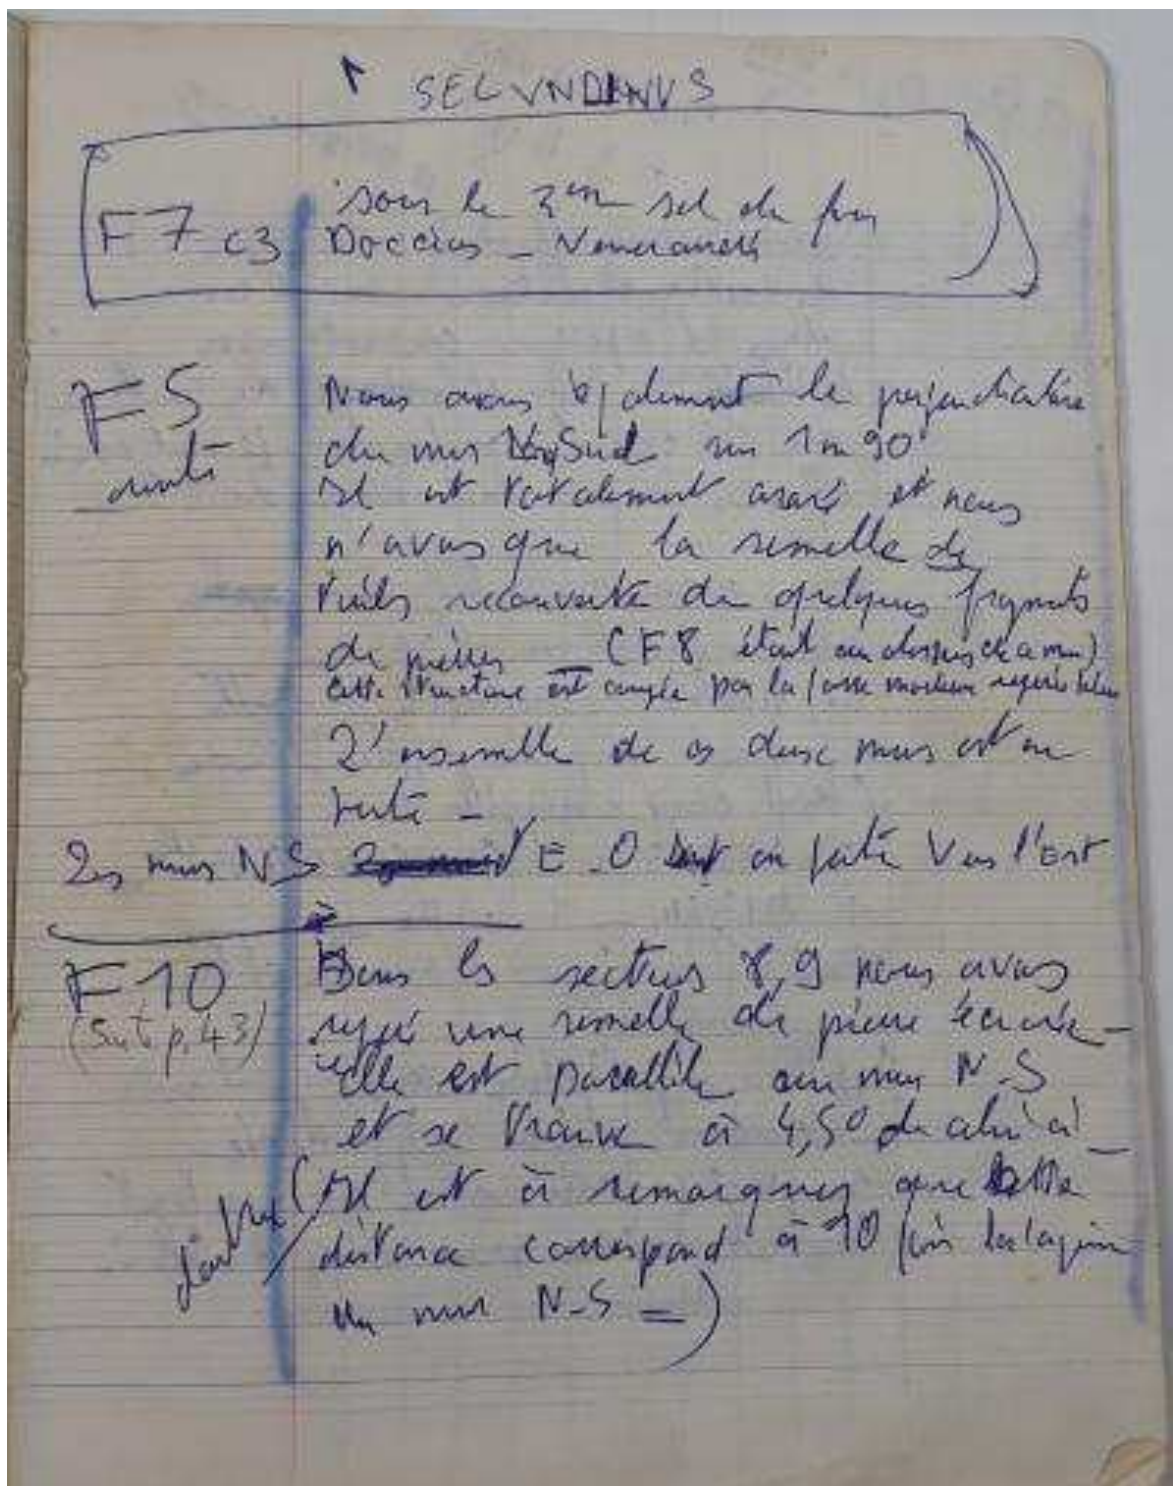 1 SECVNDINVS
F7 c3 sous le 2em sol du four
Doccius _ Venerandi
F5 Nous avons également la perpendiculaire
suite du mur Nord Sud sur 1m90
Il est totalement arasé et nous
n'avons que la semelle de
tuiles recouverte de quelques fragments
de pierres _ (F8 était au dessus de ce mur)
cette structure est coupée par la fosse moderne repérée
L'ensemble de ces deux murs est en
Les murs N S E _ O sont en Vers l'Est
F10 Dans les secteurs 8,9 nous avons
(Suite p. 43) repéré une semelle de pierre écrasée _
elle est parallèle au mur N-S
et se trouve à 4,50 de celui ci _
(Il est à remarquer que cette
distance correspond à 10 fois la largeur
du mur N-S =)